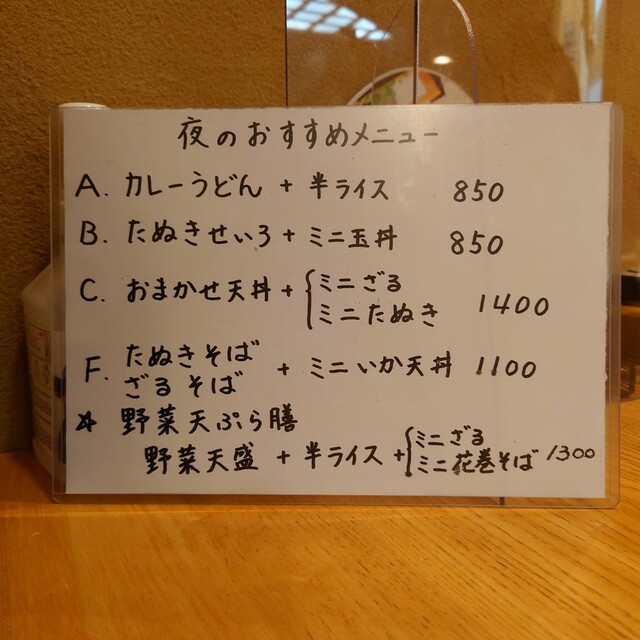 夜のおすすめメニュー
A. カレーうどん + 半ライス 850
B. たぬきせいろ + ミニ玉丼 850
C. おまかせ天丼 + { ミニざる
ミニたぬき 1400
F. たぬきそば
ざるそば + ミニいか天丼 1100
☆ 野菜天ぷら膳
野菜天盛 + 半ライス + { ミニざる
ミニ花巻そば 1300